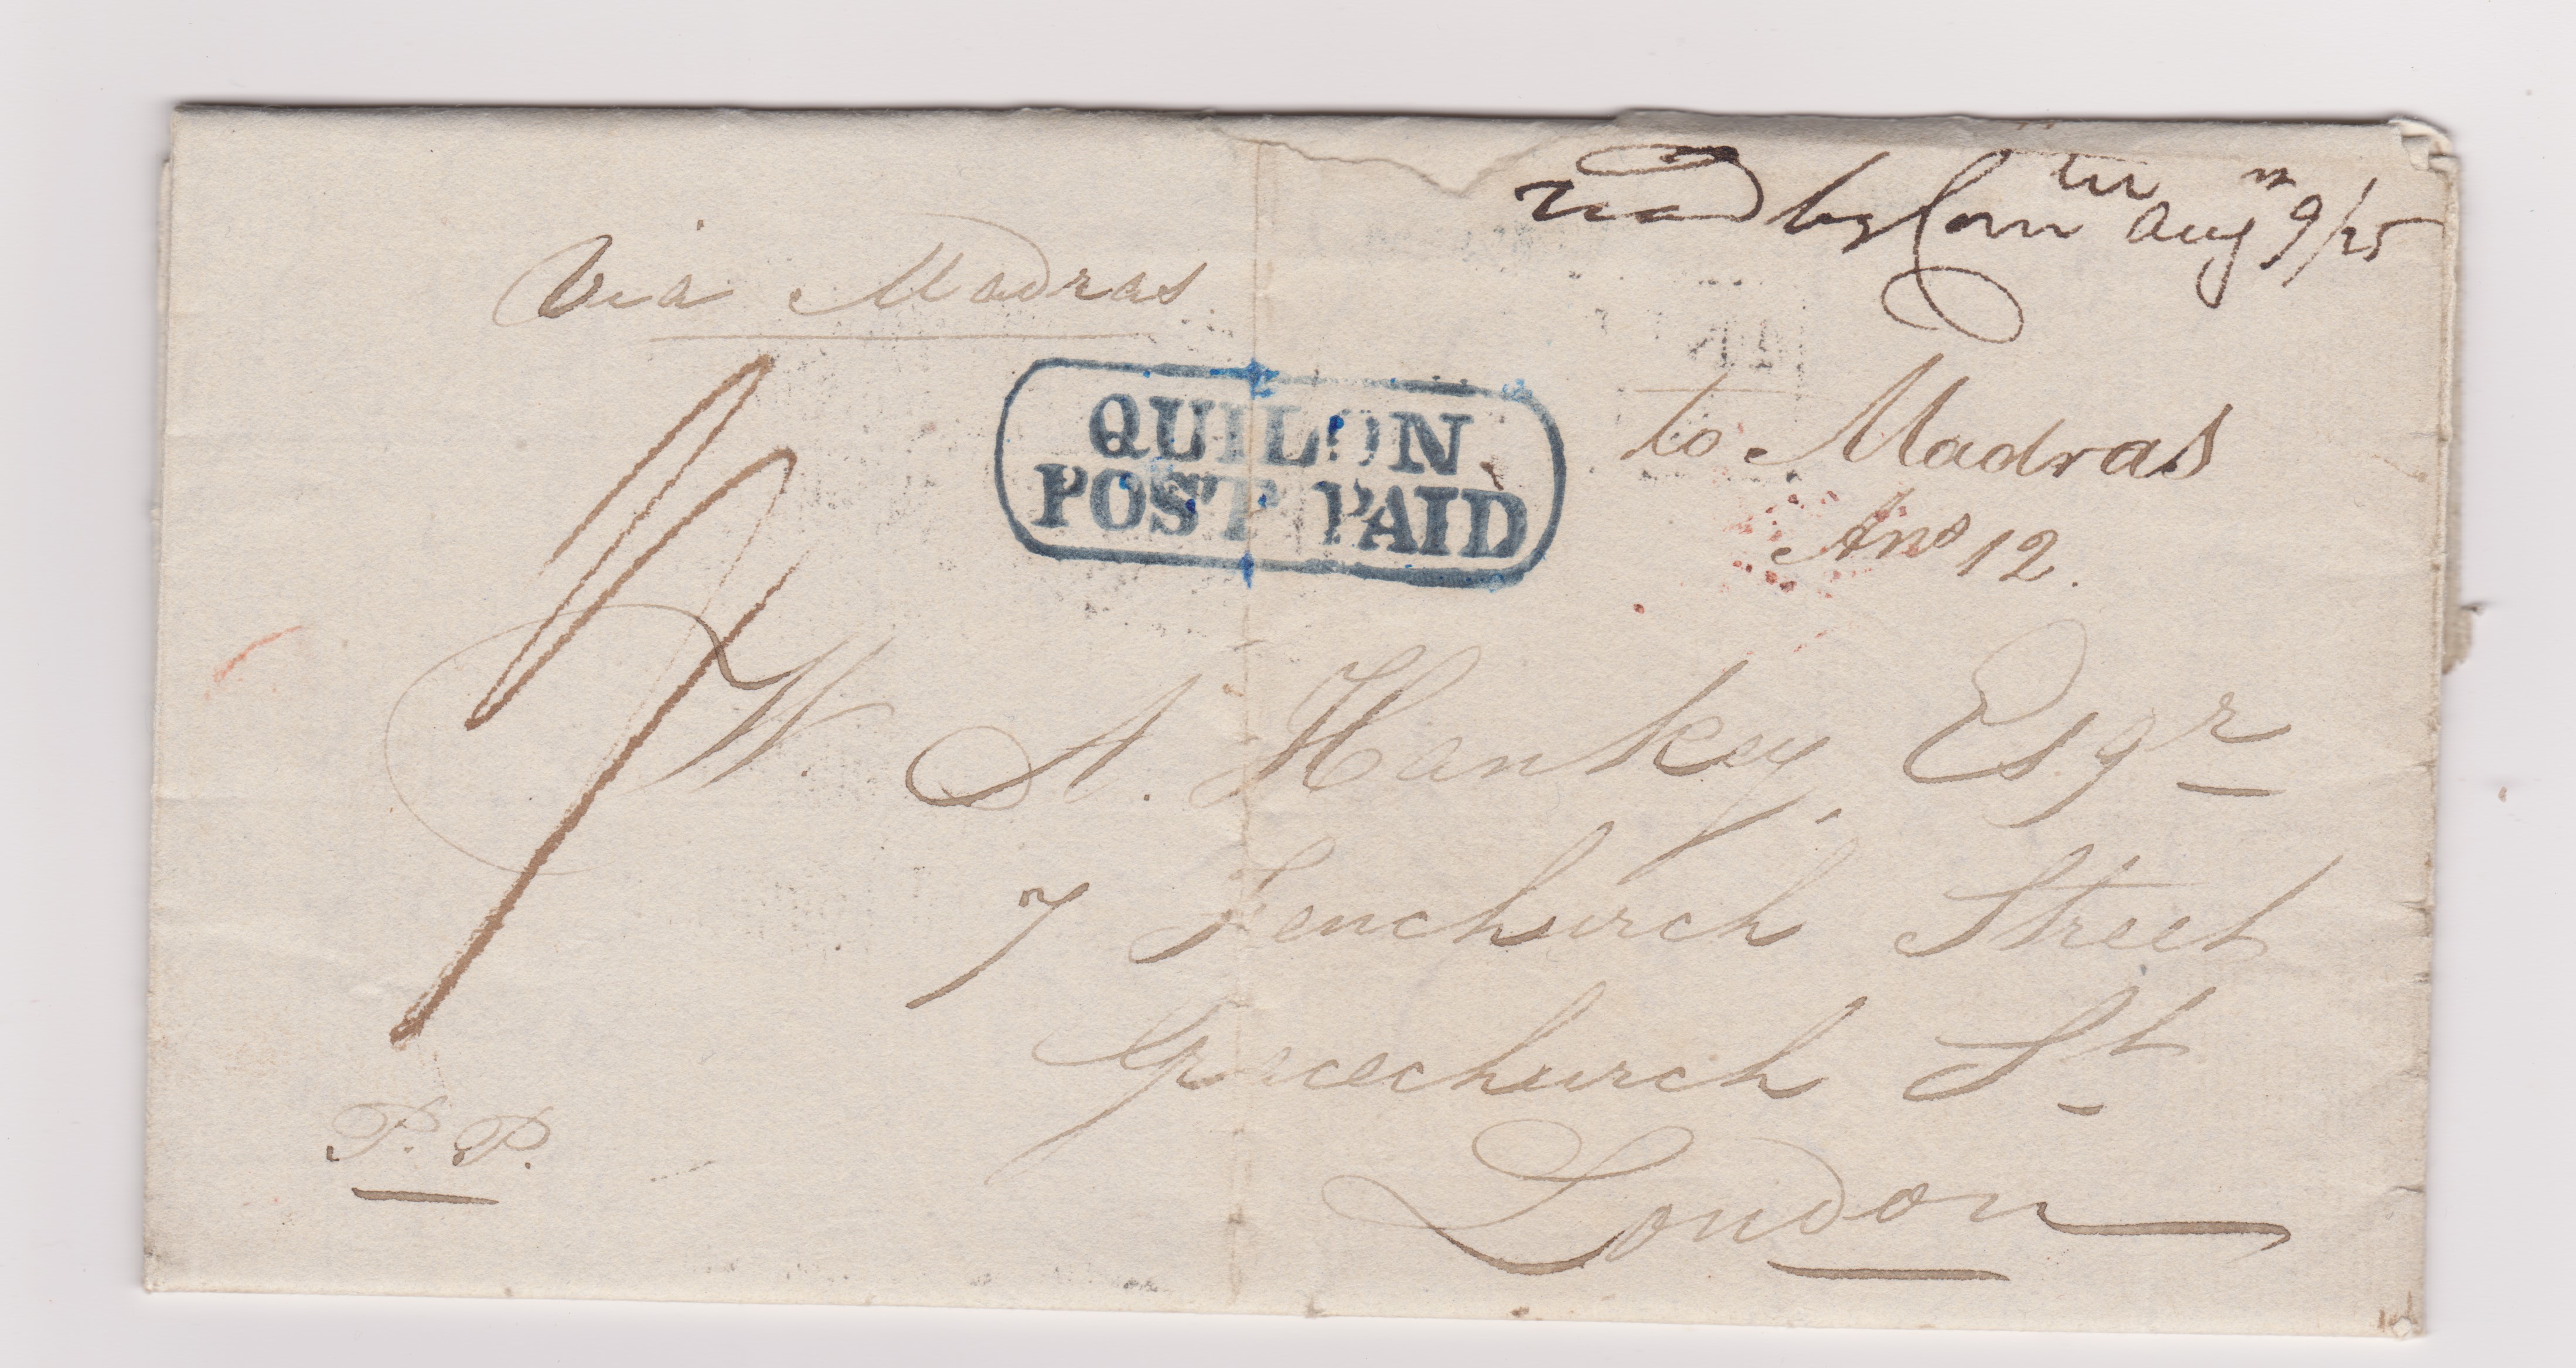 read by Com^tee Aug^t 9/25
Via Madras
QUILON
POST PAID
to Madras
An^s 12.
W. A. Hankey Esq^r
7 Fenchurch Street
Gracechurch S^t
London
P. P.